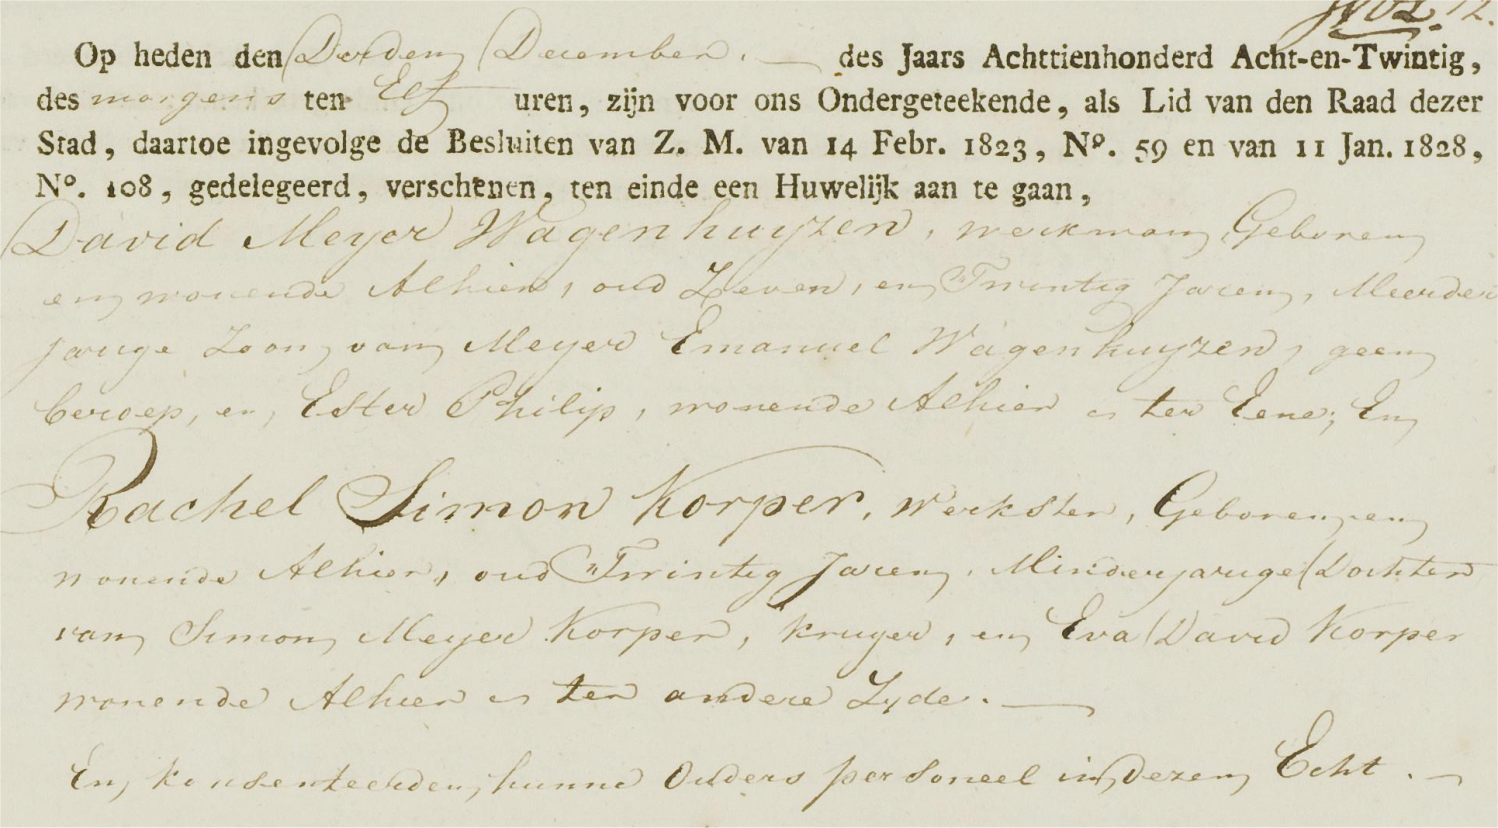 12.
Op heden den Derden December. — des Jaars Achttienhonderd Acht-en-Twintig,
des morgens ten Elf uren, zijn voor ons Ondergeteekende, als Lid van den Raad dezer
Stad, daartoe ingevolge de Besluiten van Z. M. van 14 Febr. 1823, Nº. 59 en van 11 Jan. 1828,
Nº. 108, gedelegeerd, verschenen, ten einde een Huwelijk aan te gaan,
David Meyer Wagenhuyzen, werkman, Geboren
en wonende Alhier, oud Zeven, en Twintig Jaren, Meerder
jarige Zoon van Meyer Emanuel Wagenhuyzen, geen
beroep, en, Ester Philip, wonende Alhier ter Eene; En
Rachel Simon Korper, Werkster, Geboren, en
wonende Alhier, oud Twintig Jaren, Minderjarige Dochter
van Simon Meyer Korper, kruyer, en Eva David Korper
wonende Alhier ter andere Zyde. —
En, konsenteerden, hunne Ouders personeel in dezen Echt. —